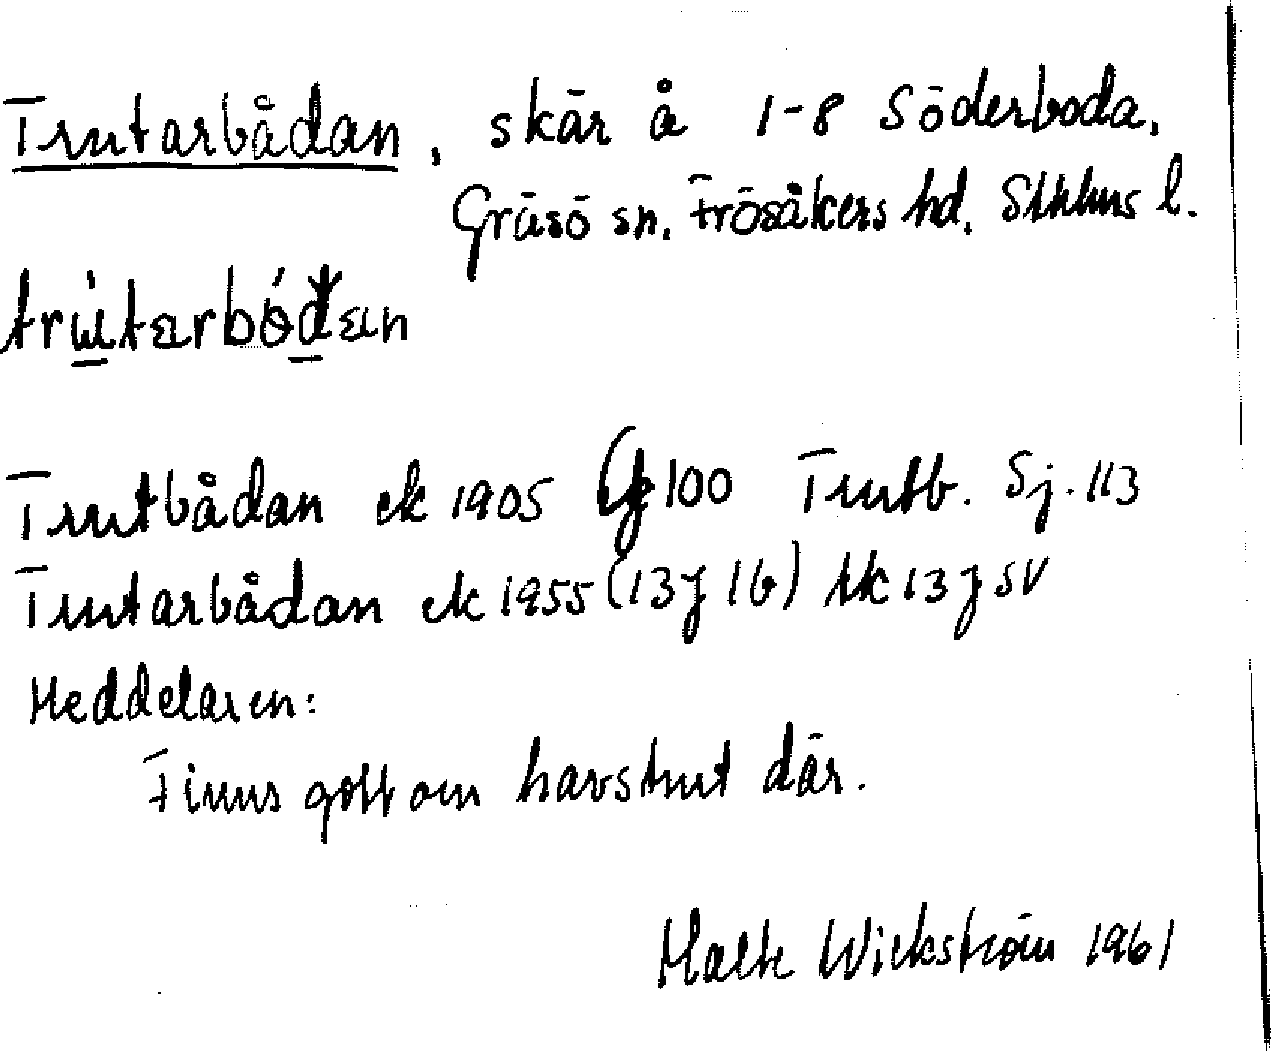 Trutarbådan, skär å 1-8 Söderboda,
Gräsö sn. Frösåkers hd. Sthlms l.
Trutbådan ek 1905 100 Trutb. Sj. 113
Trutarbådan ek 1955 (13 j 1b) tk 13 j SV
Meddelaren:
Finns gott om havstrut där.
Malte Wickström 1961